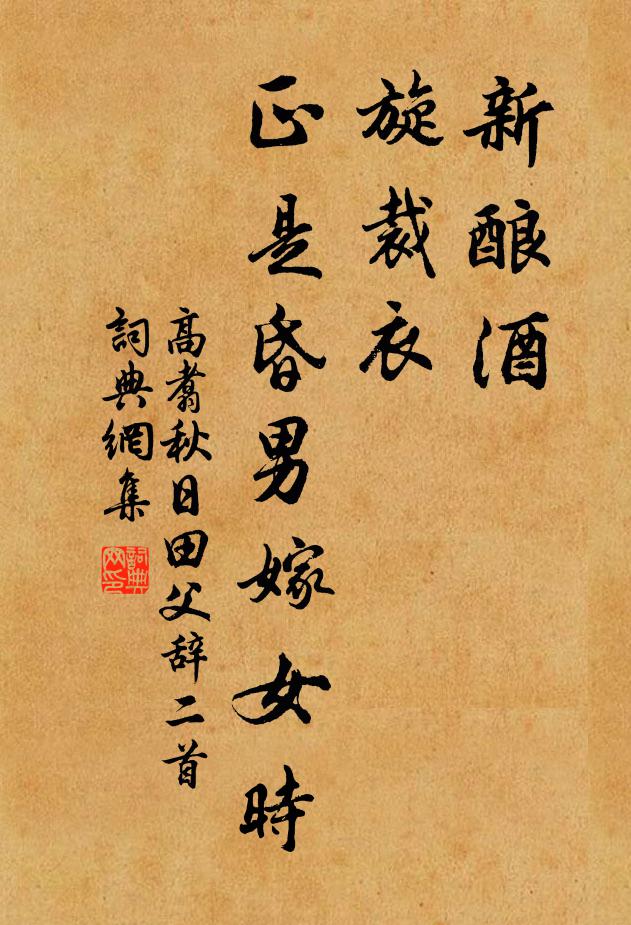 新酿酒
旋裁衣
正是昏男嫁女時
高翥秋日田父辞二首
詞典網集
詞典網印